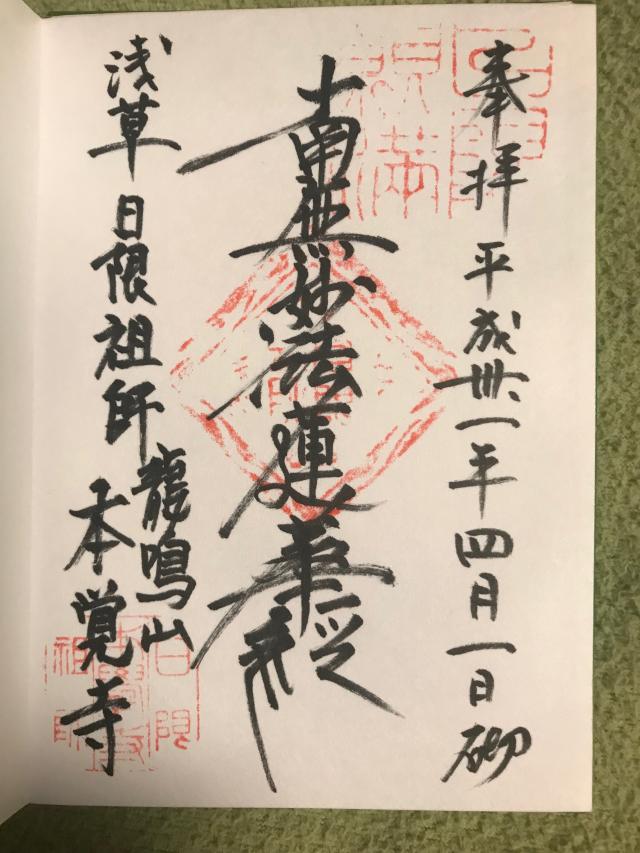 奉拝 平成卅一年四月一日 砌
南無妙法蓮華経
浅草 日限祖師
龍鳴山
本覚寺
日限
祖師